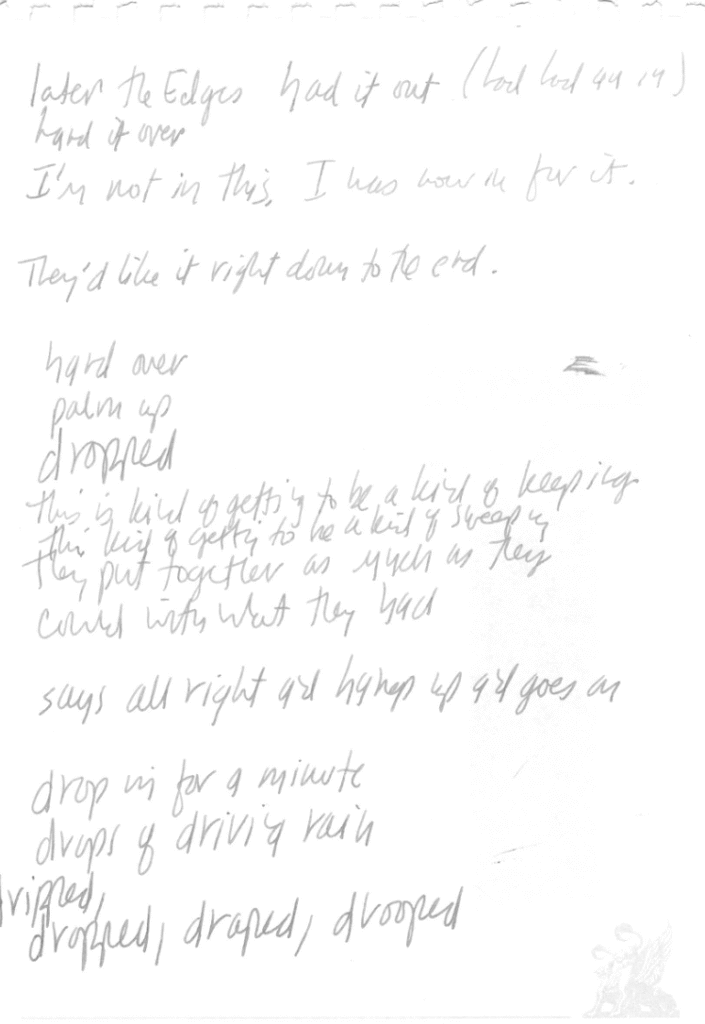 later the Edges had it out (had had
hard it over
I'm not in this, I was now in for it.
They'd like it right down to the end.
hard over
palm up
dropped
this is kind of getting to be a kind of keeping
this kind of getting to be a kind of sweeping
they put together as much as they
could with what they had
says all right and hangs up and goes on
drop in for a minute
drops of driving rain
dripped,
dropped, draped, drooped